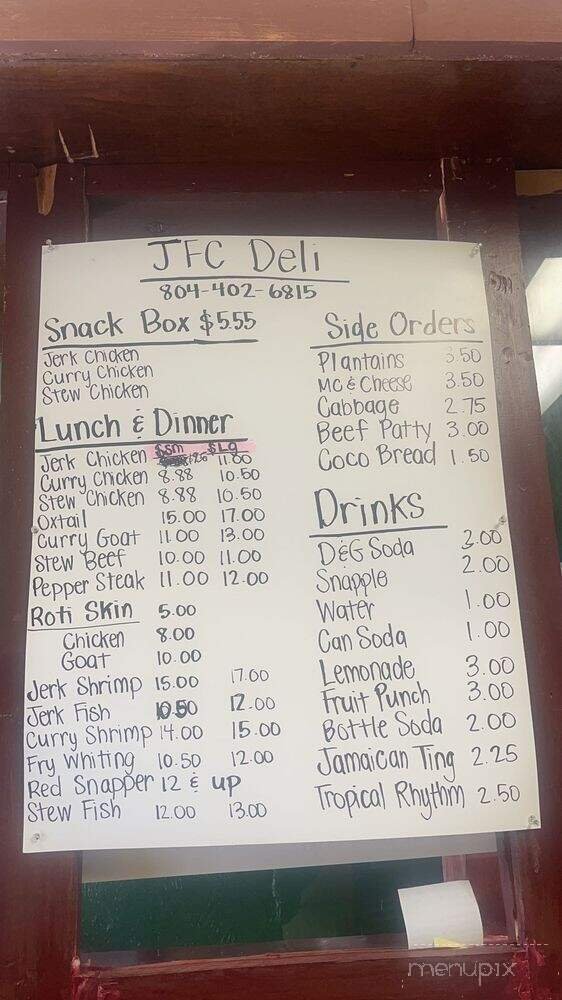 JFC Deli
804-402-6815
Snack Box $5.55
Jerk Chicken
Curry Chicken
Stew Chicken
Lunch & Dinner
$Sm $Lg
Jerk Chicken 11.00
Curry Chicken 8.88 10.50
Stew Chicken 8.88 10.50
Oxtail 15.00 17.00
Curry Goat 11.00 13.00
Stew Beef 10.00 11.00
Pepper Steak 11.00 12.00
Roti Skin 5.00
Chicken 8.00
Goat 10.00
Jerk Shrimp 15.00 17.00
Jerk Fish 10.50 12.00
Curry Shrimp 14.00 15.00
Fry Whiting 10.50 12.00
Red Snapper 12 & up
Stew Fish 12.00 13.00
Side Orders
Plantains 3.50
Mc & Cheese 3.50
Cabbage 2.75
Beef Patty 3.00
Coco Bread 1.50
Drinks
D&G Soda 2.00
Snapple 2.00
Water 1.00
Can Soda 1.00
Lemonade 3.00
Fruit Punch 3.00
Bottle Soda 2.00
Jamaican Ting 2.25
Tropical Rhythm 2.50
menupix